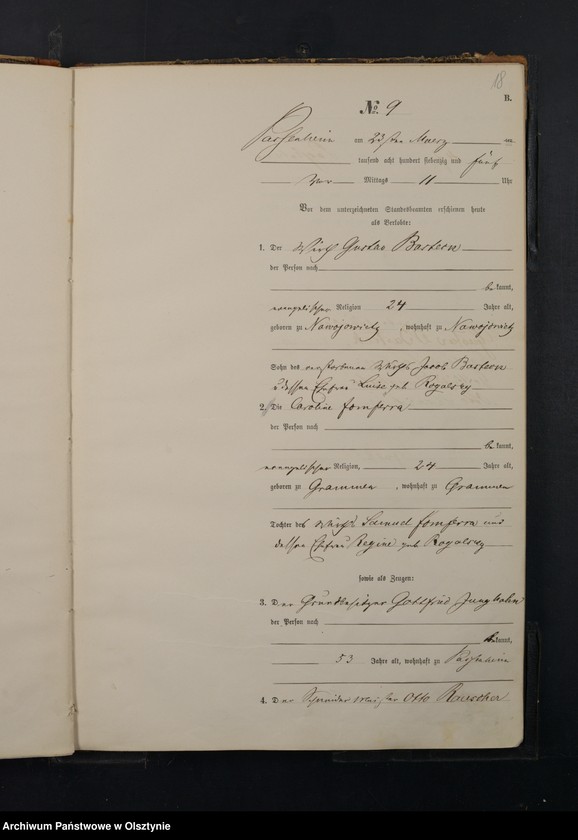 18
B.
№ 9
Passenheim am 23sten Maerz
tausend acht hundert siebenzig und fünf
Vor Mittags 11 Uhr
Vor dem unterzeichneten Standesbeamten erschienen heute
als Verlobte:
1. Der Wirth Gustav Bastern
der Person nach
bekannt,
evangelischer Religion 24 Jahre alt,
geboren zu Nawojowitz, wohnhaft zu Nawojowitz
Sohn des verstorbenen Wirths Jacob Bastern
u dessen Ehefrau Luise geb Rogalsky
2. Die Caroline Fomferra
der Person nach
bekannt,
evangelischer Religion, 24 Jahre alt,
geboren zu Grammen, wohnhaft zu Grammen
Tochter des Wirths Samuel Fomferra und
dessen Ehefrau Regine geb Rogalsky
sowie als Zeugen:
3. Der Grundbesitzer Gottfried Jungbohn
der Person nach
bekannt,
53 Jahre alt, wohnhaft zu Passenheim
4. Der Schneidermeister Otto Rauscher
Archiwum Państwowe w Olsztynie